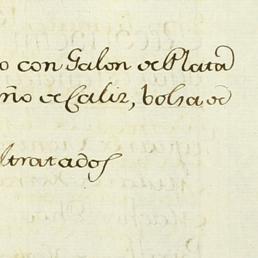 o con Galon de Plata
ño de Caliz, bolsa de
ltratados